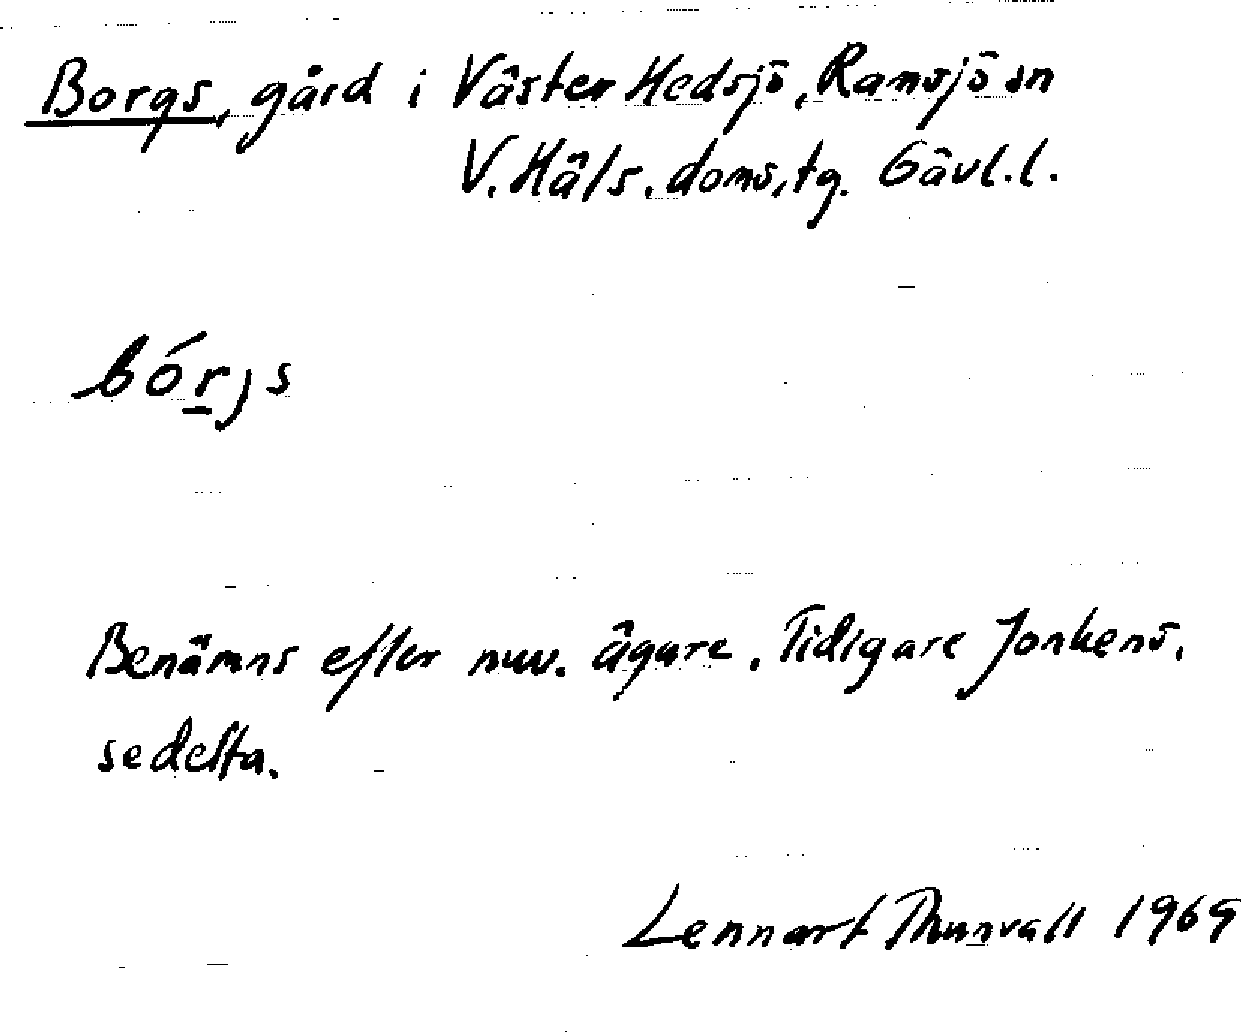 Borgs, gård i Väster Hedsjö, Ramsjö sn
V. Häls. doms, tg. Gävl. l.
bórjs
Benämns efter nuv. ägare. Tidigare Jonkens,
se detta.
Lennart Thunvall 1969